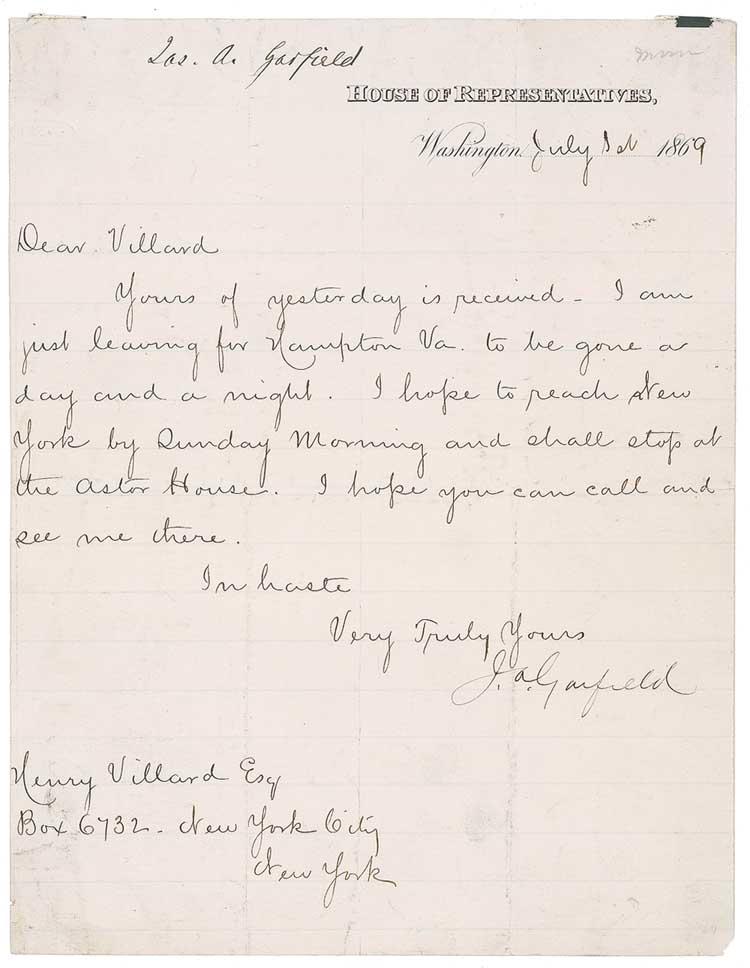 Jas. A. Garfield
HOUSE OF REPRESENTATIVES,
Washington, July 1st 1869
Dear Villard
Yours of yesterday is received - I am
just leaving for Hampton Va. to be gone a
day and a night. I hope to reach New
York by Sunday Morning and shall stop at
the Astor House. I hope you can call and
see me there.
In haste
Very Truly Yours
J. A. Garfield
Henry Villard Esq
Box 6732 - New York City
New York